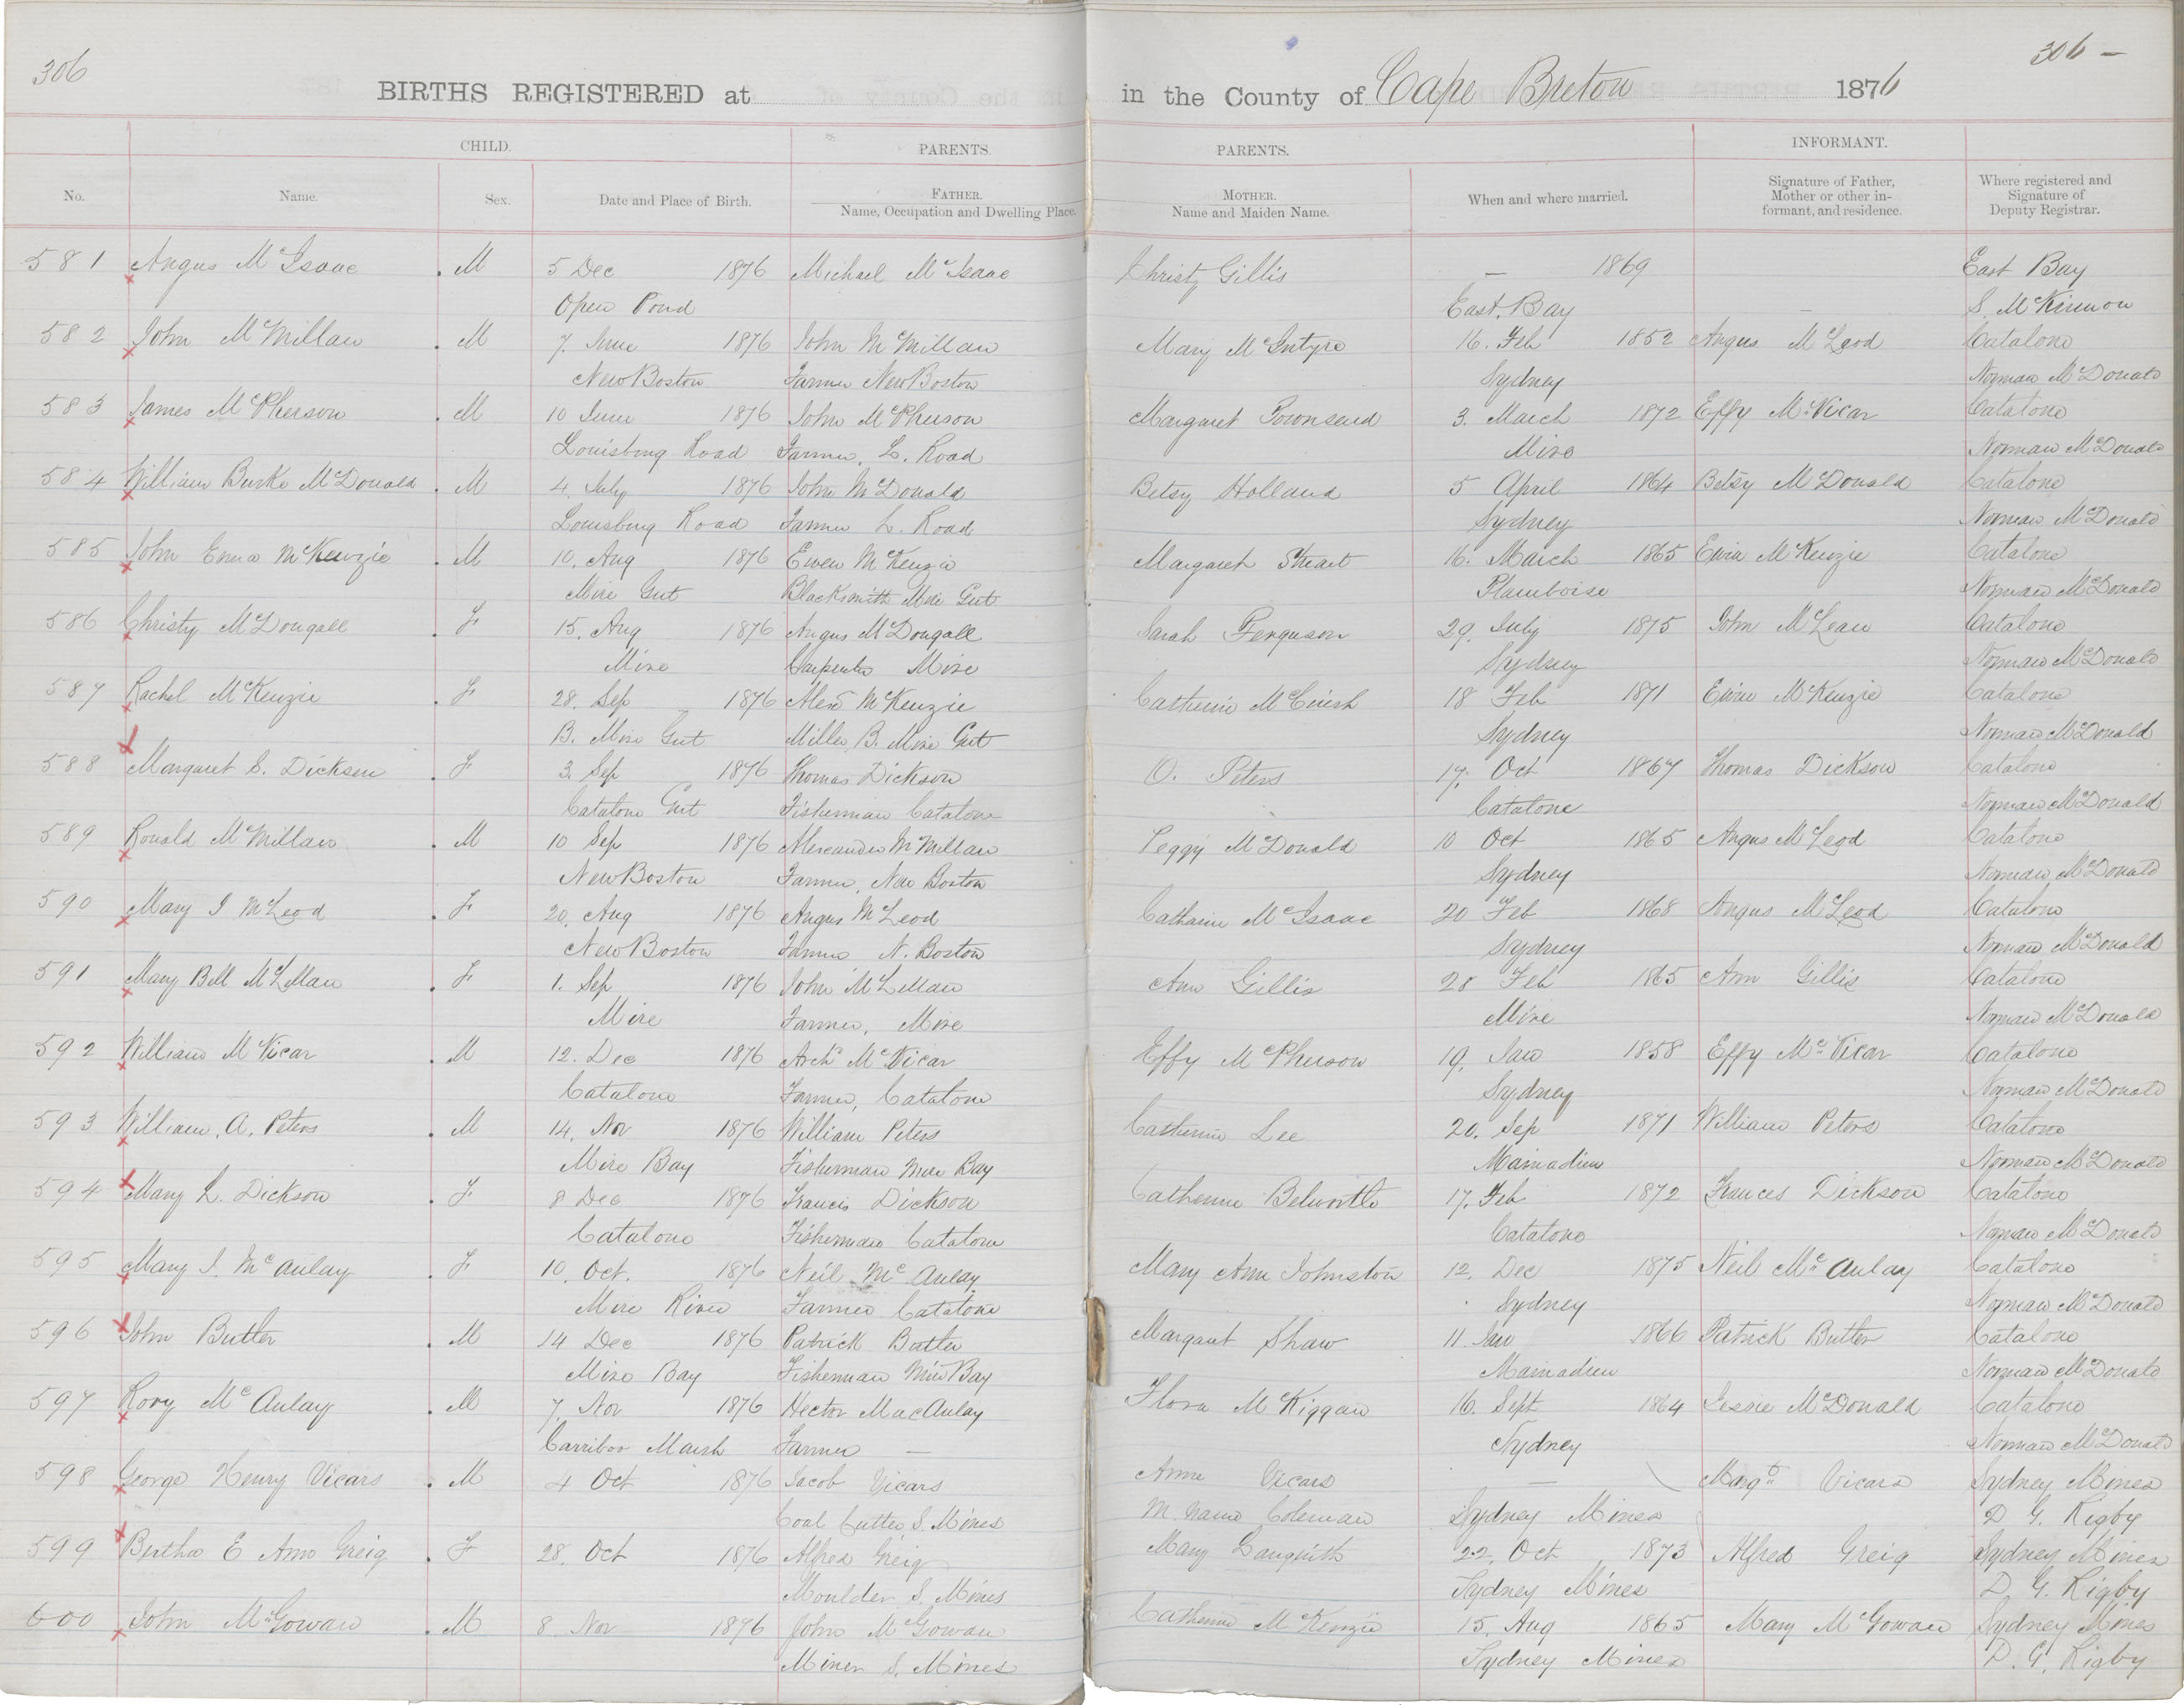 306
306 —
BIRTHS REGISTERED at in the County of Cape Breton 1876
CHILD. PARENTS. PARENTS. INFORMANT.
No. Name. Sex. Date and Place of Birth. FATHER. Name, Occupation and Dwelling Place. MOTHER. Name and Maiden Name. When and where married. Signature of Father, Mother or other informant, and residence. Where registered and Signature of Deputy Registrar.
581 Angus McIsaac M 5 Dec 1876 Michael McIsaac Christy Gillis — 1869 East Bay
Open Pond East Bay — S. McKinnon
582 John McMillan M 7. June 1876 John McMillan Mary McIntyre 16. Feb 1852 Angus McLeod Catalone
New Boston Farmer New Boston Sydney Norman McDonald
583 James McPherson M 10 June 1876 John McPherson Margaret Townsend 3. March 1872 Effy McVicar Catalone
Louisburg Road Farmer, L. Road Mire Norman McDonald
584 William Burke McDonald M 4. July 1876 John McDonald Betsy Holland 5 April 1864 Betsy McDonald Catalone
Louisburg Road Farmer L. Road Sydney Norman McDonald
585 John McKenzie M 10. Aug 1876 Ewen McKenzie Margaret 16. March 1865 McKenzie Catalone
Mire Gut Blacksmith Mire Gut Norman McDonald
586 Christy McDougall F 15. Aug 1876 Angus McDougall Sarah Ferguson 29. July 1875 John McLean Catalone
Mire Carpenter Mire Sydney Norman McDonald
587 Rachel McKenzie F 28. Sep 1876 Alexr McKenzie 18 Feb 1871 McKenzie Catalone
B. Mire Gut Miller B. Mire Gut Sydney Norman McDonald
588 Margaret S. Dickson F 3. Sep 1876 Thomas Dickson O. Peters 17. Oct 1867 Thomas Dickson Catalone
Catalone Gut Fisherman Catalone Catalone Norman McDonald
589 Ronald McMillan M 10 Sep 1876 Alexander McMillan Peggy McDonald 10 Oct 1865 Angus McLeod Catalone
New Boston Farmer, New Boston Sydney Norman McDonald
590 Mary J McLeod F 20. Aug 1876 Angus McLeod Catharine McIsaac 20 Feb 1868 Angus McLeod Catalone
New Boston Farmer N. Boston Sydney Norman McDonald
591 Mary Bell McLellan F 1. Sep 1876 John McLellan Ann Gillis 28 Feb 1865 Ann Gillis Catalone
Mire Farmer, Mire Mire Norman McDonald
592 William McVicar M 12. Dec 1876 Archd McVicar Effy McPherson 19. Jan 1858 Effy McVicar Catalone
Catalone Farmer, Catalone Sydney Norman McDonald
593 William. A. Peters M 14. Nov 1876 William Peters Catherine Lee 20. Sep 1871 William Peters Catalone
Mire Bay Fisherman Mire Bay Mainadieu Norman McDonald
594 Mary L. Dickson F 8 Dec 1876 Francis Dickson Catherine 17. Feb 1872 Frances Dickson Catalone
Catalone Fisherman Catalone Catalone Norman McDonald
595 Mary J. McAulay F 10. Oct. 1876 Neil McAulay Mary Ann Johnston 12. Dec 1875 Neil McAulay Catalone
Mire River Farmer Catalone Sydney Norman McDonald
596 John Butler M 14 Dec 1876 Patrick Butler Margaret Shaw 11 Jan 1866 Patrick Butler Catalone
Mire Bay Fisherman Mire Bay Mainadieu Norman McDonald
597 Rory McAulay M 7. Nov 1876 Hector MacAulay Flora McKiggan 16. Sept 1864 Jessie McDonald Catalone
Carriboo Marsh Farmer — Sydney Norman McDonald
598 George Henry Vicars M 4 Oct 1876 Jacob Vicars Anne Vicars — Margt Vicars Sydney Mines
Coal Cutter, S. Mines M. Name Coleman Sydney Mines D. G. Rigby
599 Bertha E Ann Greig F 28. Oct 1876 Alfred Greig Mary 22. Oct 1873 Alfred Greig Sydney Mines
Moulder S. Mines Sydney Mines D. G. Rigby
600 John McGowan M 8 Nov 1876 John McGowan Catherine McKenzie 15. Aug 1865 Mary McGowan Sydney Mines
Miner S. Mines Sydney Mines D. G. Rigby